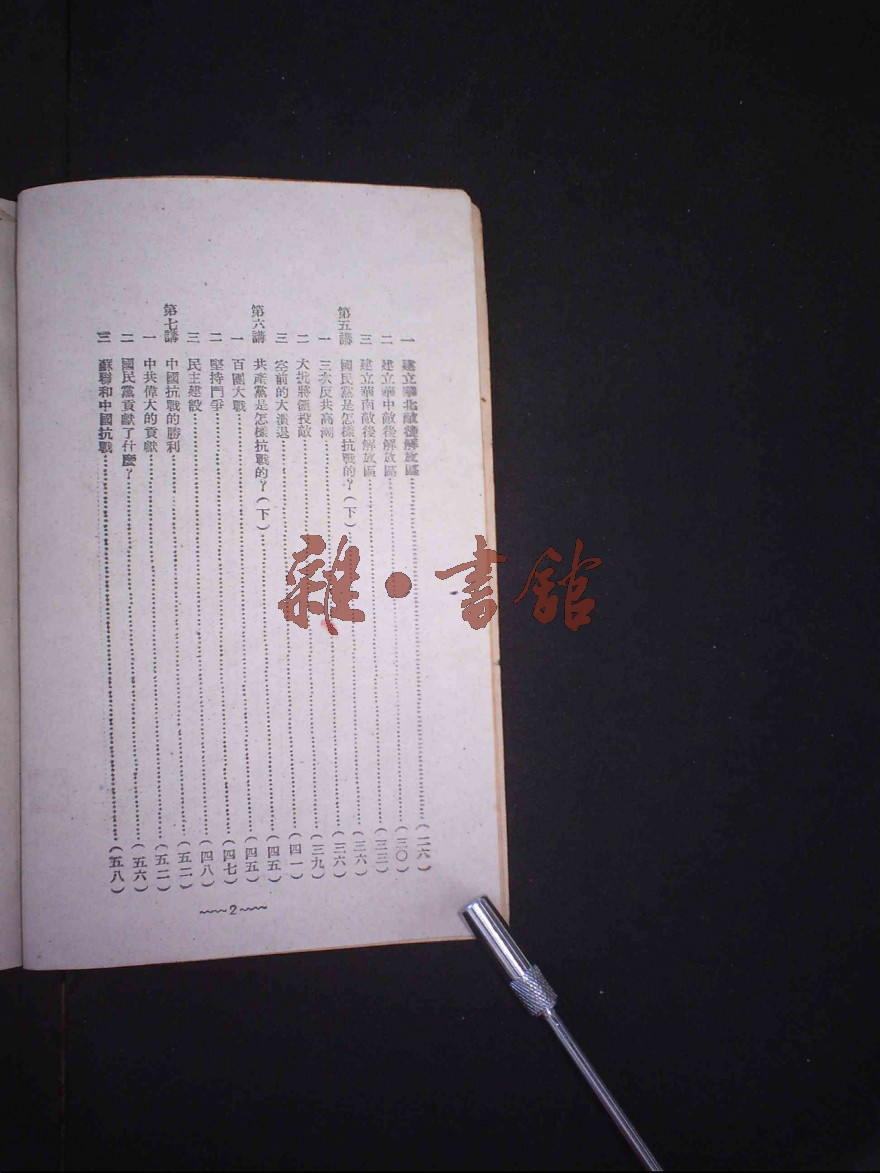 一 建立華北敵後解放區⋯⋯(二六)
二 建立華中敵後解放區⋯⋯(三〇)
三 建立華南敵後解放區⋯⋯(三三)
第五講 國民黨是怎樣抗戰的?(下)⋯⋯(三六)
一 三次反共高潮⋯⋯(三六)
二 大批將領投敵⋯⋯(三九)
三 空前的大潰退⋯⋯(四一)
第六講 共產黨是怎樣抗戰的?(下)⋯⋯(四五)
一 百團大戰⋯⋯(四五)
二 堅持鬥爭⋯⋯(四七)
三 民主建設⋯⋯(四八)
第七講 中國抗戰的勝利⋯⋯(五二)
一 中共偉大的貢獻⋯⋯(五二)
二 國民黨貢獻了什麼?⋯⋯(五六)
三 蘇聯和中國抗戰⋯⋯(五八)
~~~~2~~~~
雜·書館